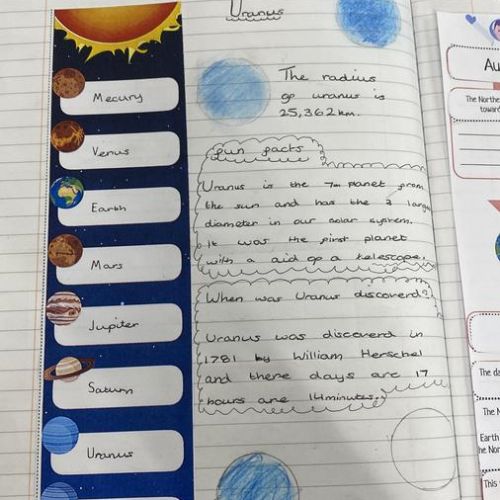 Uranus
Mecury
Venus
Earth
Mars
Jupiter
Saturn
Uranus
The radius
of uranus is
25,362km.
fun facts
Uranus is the 7th planet from
the sun and has the 3 large
diameter in our solar system.
It was the first planet
with a aid of a telescope.
When was Uranus discoverd?
Uranus was discoverd in
1781 by William Herschel
and there days are 17
hours are 14minutes.
Au
The Northe
toward
The da
The N
Earth
he Nor
This